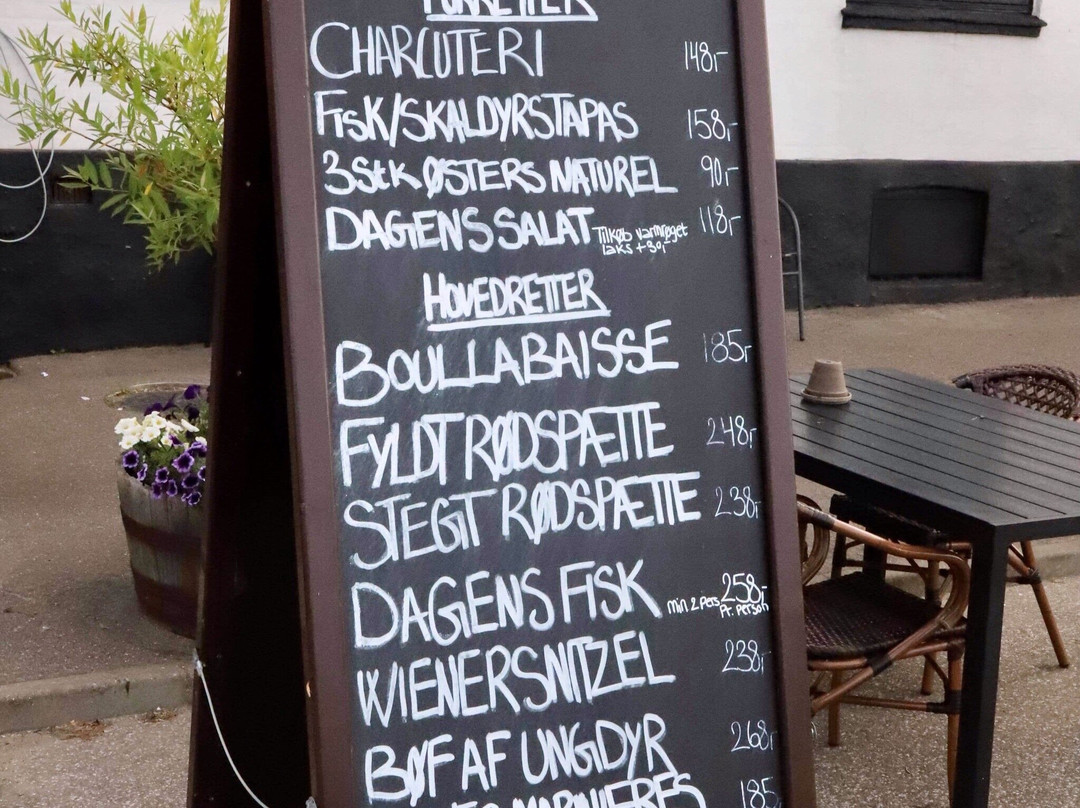 FORRETTER
CHARCUTERI 148,-
FISK/SKALDYRSTAPAS 158,-
3 Stk ØSTERS NATUREL 90,-
DAGENS SALAT Tilkøb varmrøget laks + 30,- 118,-
HOVEDRETTER
BOULLABAISSE 185,-
FYLDT RØDSPÆTTE 248,-
STEGT RØDSPÆTTE 238,-
DAGENS FISK min. 2 pers 258,- Pr. person
WIENERSNITZEL 238,-
BØF AF UNGDYR 268,-
MARINIERES 185